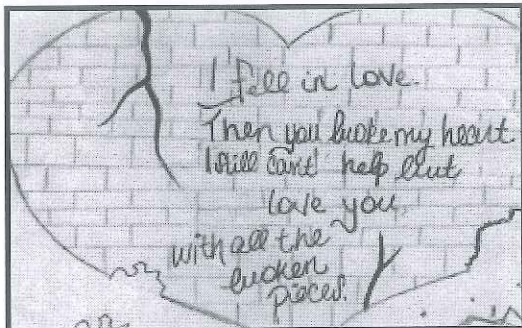 I fell in love.
Then you broke my heart
I still can't help but
love you
with all the
broken
pieces.